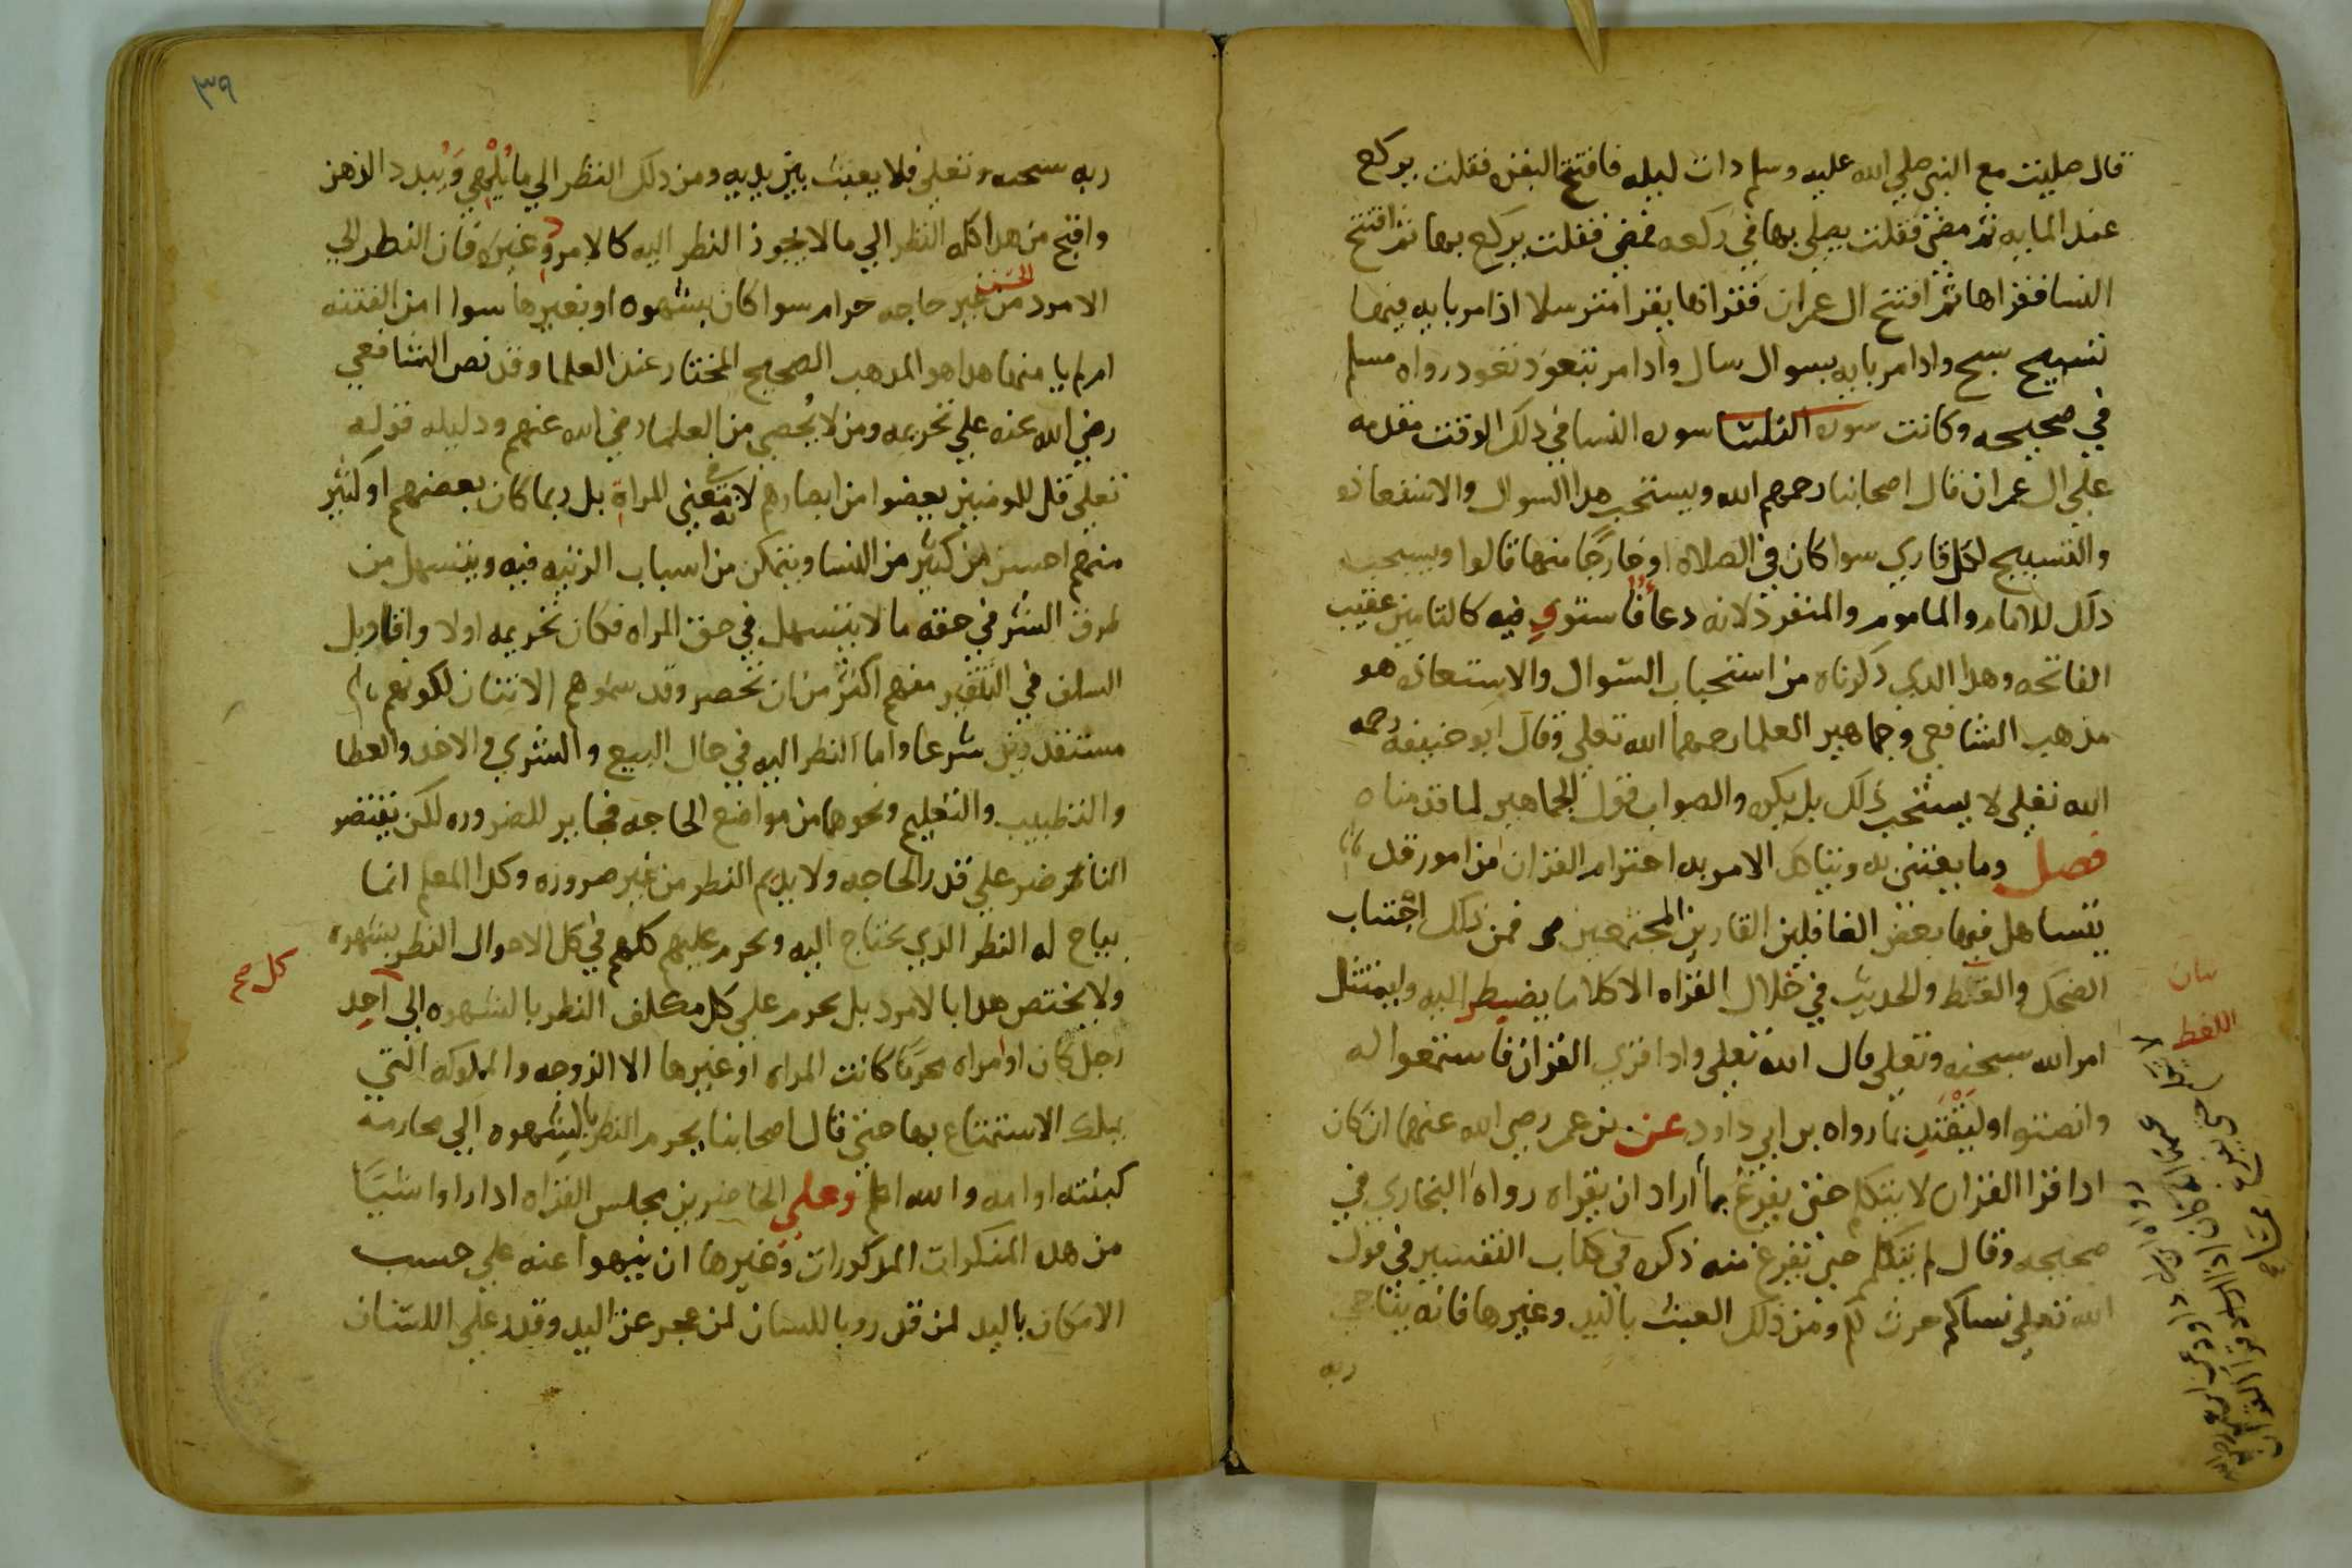 قال صليت مع النبي صلي الله عليه وسلم دات ليله فافتتح البقره فقلت يركع
عند المايه ثم مضي فقلت يصلي بها في ركعه فمضي فقلت يركع بها ثم افتتح
النسا فقراها ثم افتتح ال عمران فقراها يقرا مترسلا اذا مر بايه فيها
تسبيح سبح وادا مر بايه بسوال سال وادا مر بتعوذ تعود رواه مسلم
في صحيحه وكانت سوره النسا في ذلك الوقت مقدمه
علي ال عمران قال اصحابنا رحمهم الله ويستحب هدا السوال والاستعاذه
والتسبيح لكل قاري سوا كان في الصلاه او خارجًا منها قالوا ويستحب
دلك للامام والماموم والمنفرد لانه دعا فاستووا فيه كالتامين عقيب
الفاتحه وهدا الدي ذكرناه من استحباب السوال والاستعاذه هو
مذهب الشافعي وجماهير العلما رحمهم الله تعلي وقال ابو حنيفه رحمه
الله تعلي لا يستحب ذلك بل يكره والصواب قول الجماهير لما قدمناه
فصل ومما يعتني به ويتاكد الامر به احترام القران من امور قد
يتساهل فيها بعض الغافلين القارين المجتمعين فمن ذلك اجتناب
الضحك واللغط والحديث في خلال القراه الا كلاما يضطر اليه وليمتثل
امر الله سبحنه وتعلي قال الله تعلي وادا قري القران فاستمعوا له
وانصتوا وليَقْتَدِ بما رواه بن ابي داود عن بن عمر رضي الله عنهما انه كان
ادا قرا القران لا يتكلم حتي يفرغ مما أراد ان يقراه رواه البخاري في
صحيحه وقال لم يتكلم حتي يفرغ منه ذكره في كتاب التفسير في قول
الله تعلي نساكم حرث لكم ومن ذلك العبث باليد وغيرها فانه يناجي
ربه
بيان
اللغط
٣٩
ربه سبحنه وتعلي فلا يعبث بين يديه ومن دلك النظر الي ما يُلْهِي وَيُبدد الذهن
واقبح من هدا كله النظر الي ما لا يجوز النظر اليه كالامرد وغيره فان النظر الي
الامرد الحسن من غير حاجه حرام سوا كان بشهوه او بغيرها سوا امن الفتنه
ام لم يامنها هدا هو المدهب الصحيح المختار عند العلما وقد نص الشافعي
رضي الله عنه علي تحريمه ومن لا يُحصي من العلما رضي الله عنهم ودليله قوله
تعلي قل للمومنين يغضوا من ابصارهم لانه في معني المراة بل ربما كان بعضهم او كثير
منهم احسن من كثير من النسا ويتمكن من اسباب الريبه فيه ويتسهل من
طرق الشر في حقه ما لا يتسهل في حق المراه فكان تحريمه اولا واقاويل
السلف في التنفير منهم اكثر من ان تحصر وقد سموهم الانتان لكونهم
مستقدرين شرعا واما النظر اليه في حال البيع والشري والاخد والعطا
والتطبيب والتعليم ونحوها من مواضع الحاجه فجايز للضروره لكن يقتصر
الناظر علي قدر الحاجه ولا يديم النظر من غير ضروره وكدا المعلم انما
يباح له النظر الدي يحتاج اليه ويحرم عليهم كلهم في كل الاحوال النظر بشهوه
ولا يختص هدا بالامرد بل يحرم علي كل مكلف النظر بالشهوه الي احد
كل صح
رجل كان او امراه محرمًا كانت المراه او غيرها الا الزوجه والمملوكه التي
يملك الاستمتاع بها حتي قال اصحابنا يحرم النظر بالشهوه الي محارمه
كبنته او امه والله اعلم وعلي الحاضرين مجلس القراه ادا راوا شيًا
من هده المنكرات المدكورات وغيرها ان ينهوا عنه علي حسب
الامكان باليد لمن قدر وباللسان لمن عجز عن اليد وقدر علي اللسان